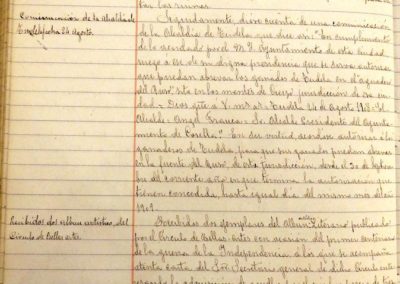 tan las ruinas
Comunicación de la Alcaldía de
Tudela fecha 24 agosto.
Seguidamente, dióse cuenta de una comunicación
de la Alcaldía de Tudela que dice así "En cumplimiento
de lo acordado por el M. I. Ayuntamiento de esta Ciudad
ruego a de su digna presidencia que se sirva autorizar
que puedan abrevar los ganados de Tudela en el aguadero
del sito en los montes de Cierzo jurisdicción de su ciu-
dad = Dios gue a V. ms as = Tudela 24 de Agosto 1908 = El
Alcalde = Angel Frauca = Sr. Alcalde Presidente del Ayunta-
miento de Corella." En su virtud, acordóse autorizar a los
ganaderos de Tudela, para que sus ganados puedan abrevar
en la fuente del de esta jurisdicción, desde el 30 de
del corriente año en que termina la autorización que
tienen concedida, hasta igual día del mismo mes del año
1909.
Recibidos dos album artístico, del
Círculo de Bellas artes
Recibidos dos ejemplares del Album Literario publicado
por el Círculo de Bellas-Artes con ocasión del primer centenario
de la guerra de la Independencia, a los que se acompaña
atenta carta del Sor. Secretario general de dicho Círculo